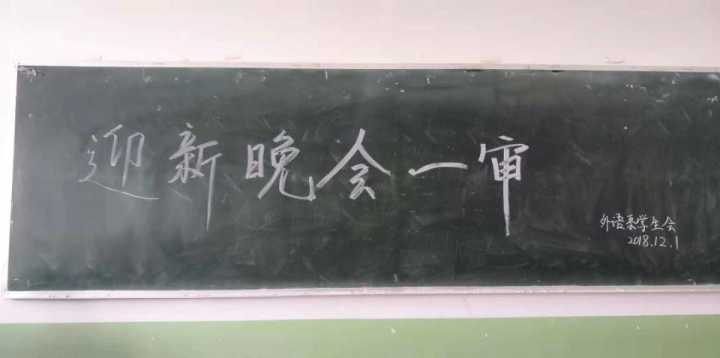 迎新晚会一审
外语系学生会
2018.12.1